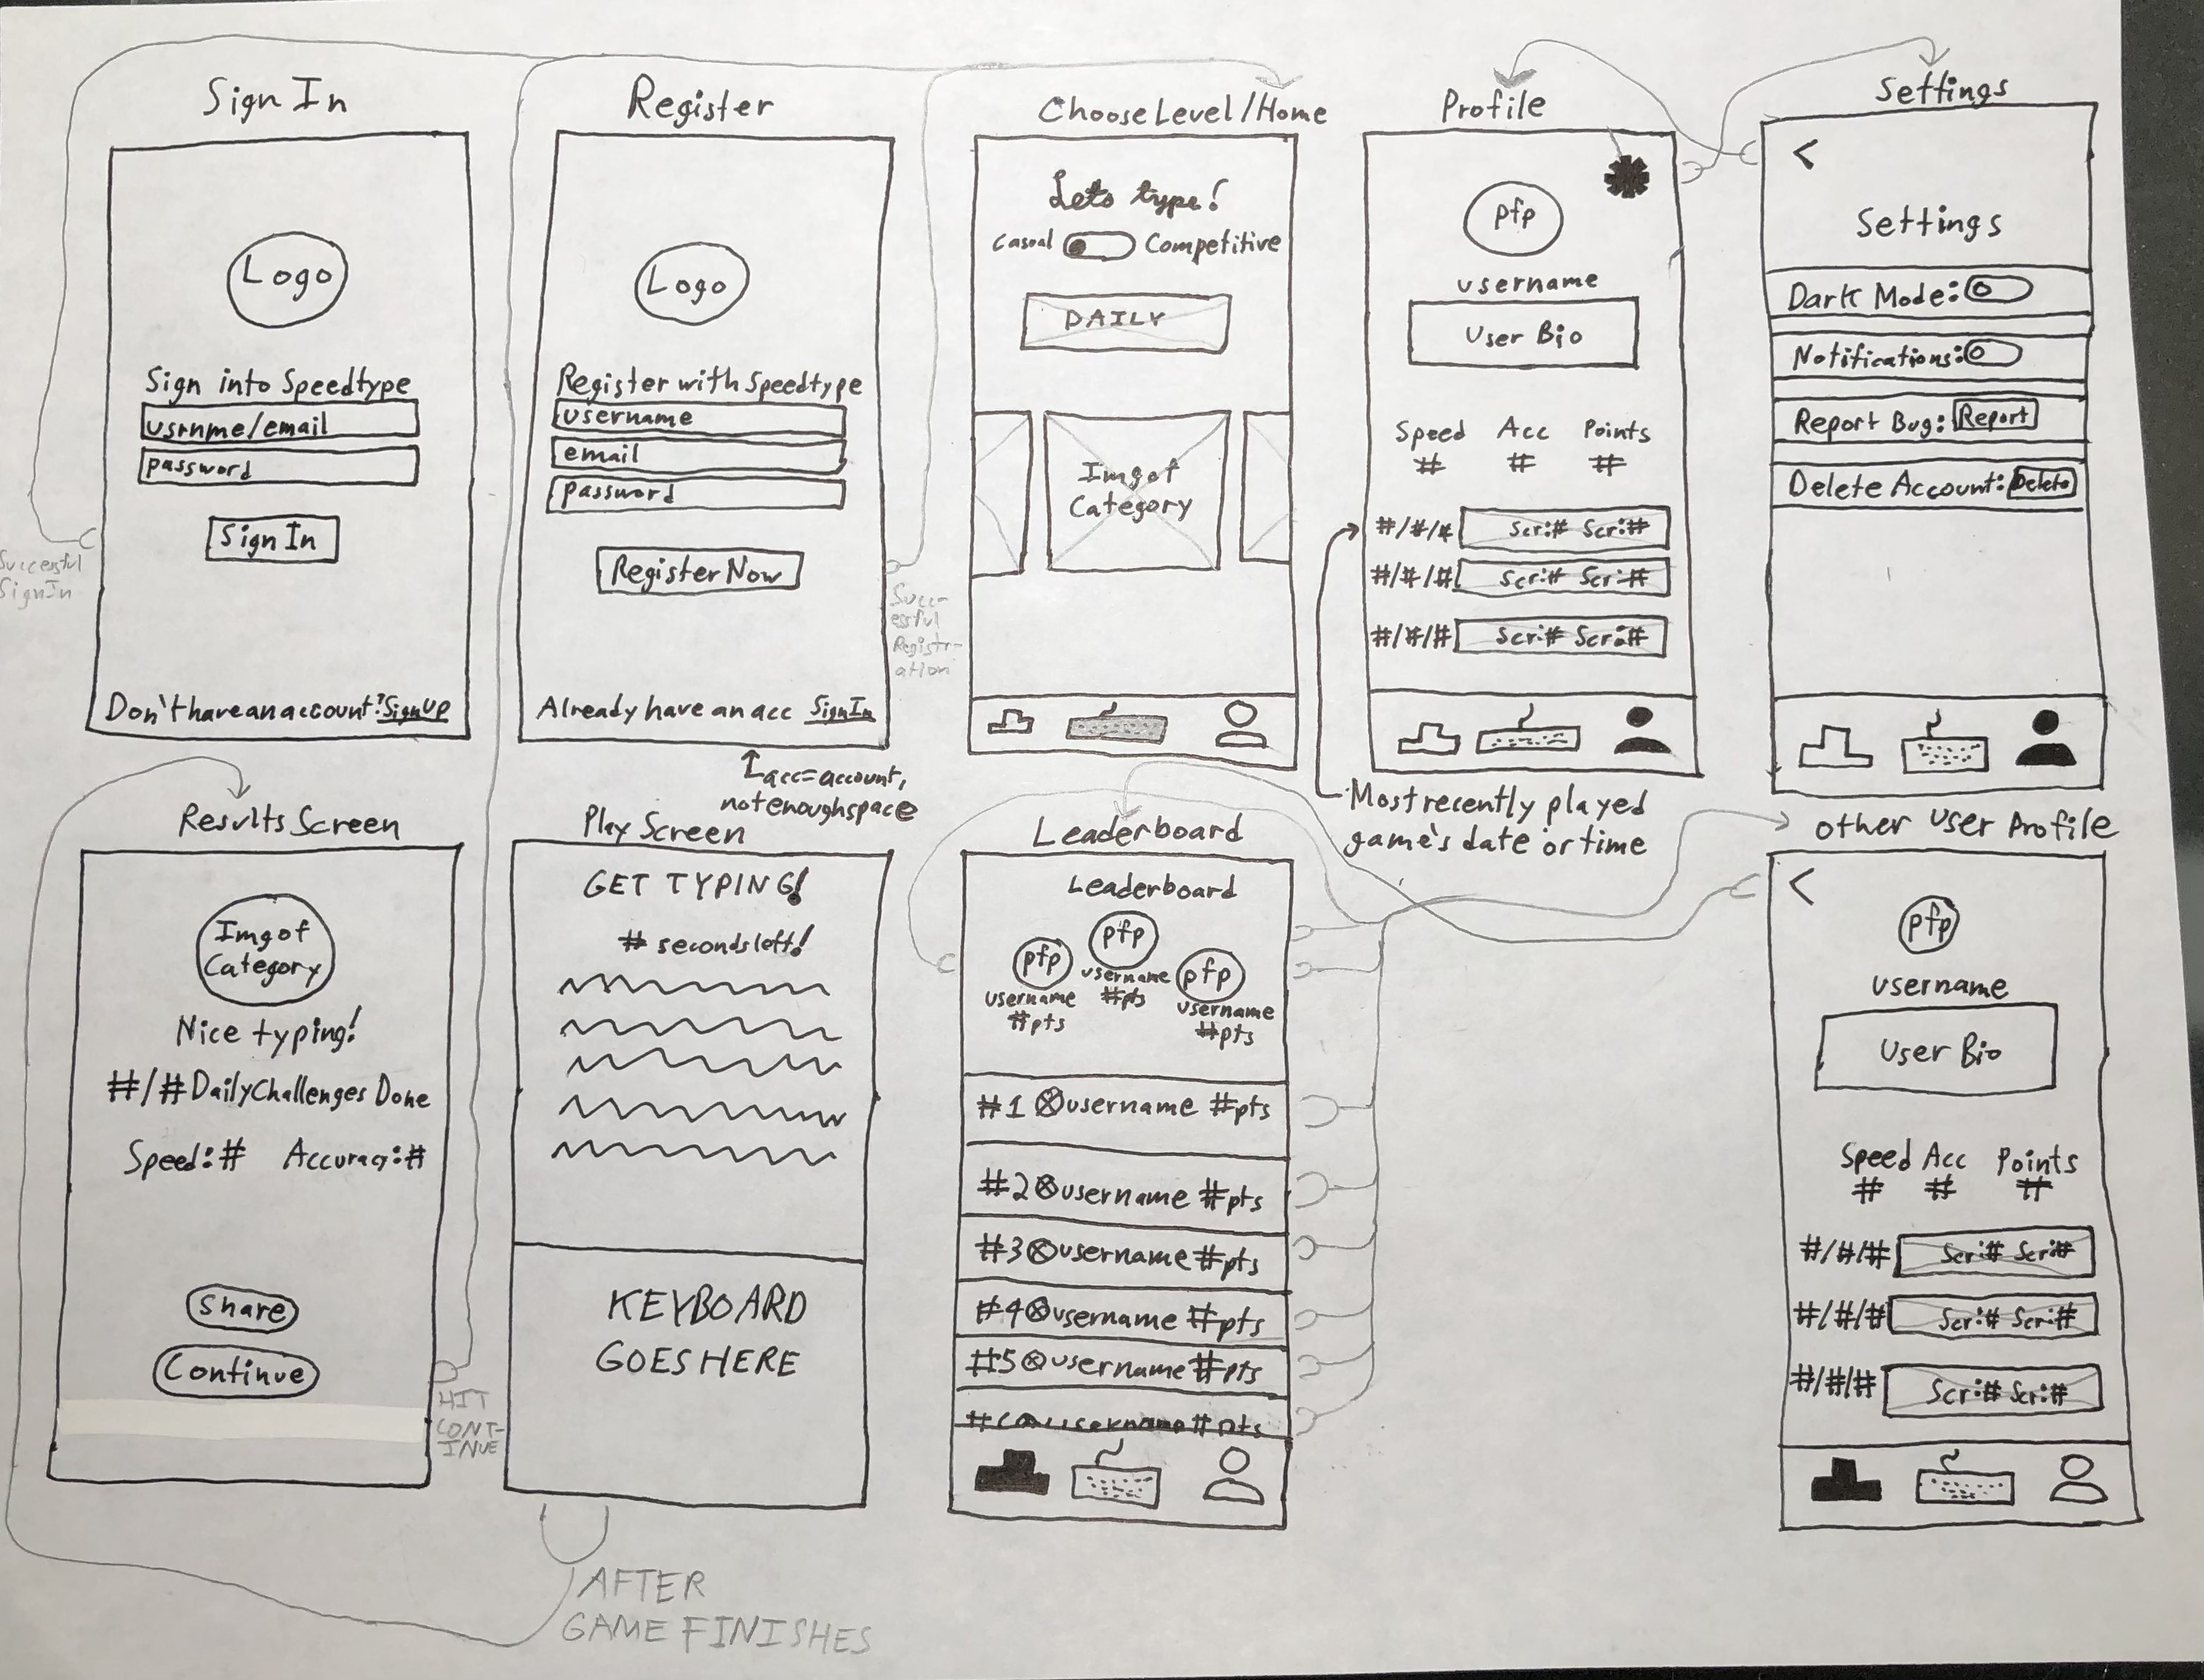 Sign In
Logo
Sign into Speedtype
usrnme/email
password
Sign In
Don't have an account? Sign Up
Successful
Sign In
Register
Logo
Register with Speedtype
username
email
password
Register Now
Already have an acc Sign In
acc=account,
not enough space
Succ-
essful
Registr-
ation
Choose Level/Home
Lets type!
Casual Competitive
DAILY
Img of
Category
Profile
pfp
username
User Bio
Speed Acc Points
# # #
#/#/# Scr:# Scr:#
#/#/# Scr:# Scr:#
#/#/# Scr:# Scr:#
Most recently played
game's date or time
Settings
<
Settings
Dark Mode:
Notifications:
Report Bug: Report
Delete Account: Delete
Results Screen
Img of
Category
Nice typing!
#/# Daily Challenges Done
Speed:# Accuracy:#
Share
Continue
HIT
CONT-
INUE
Play Screen
GET TYPING!
# seconds left!
KEYBOARD
GOES HERE
AFTER
GAME FINISHES
Leaderboard
Leaderboard
pfp
username
#pts
pfp
username
#pts
pfp
username
#pts
#1 username #pts
#2 username #pts
#3 username #pts
#4 username #pts
#5 username #pts
username #pts
other User Profile
<
pfp
username
User Bio
Speed Acc Points
# # #
#/#/# Scr:# Scr:#
#/#/# Scr:# Scr:#
#/#/# Scr:# Scr:#